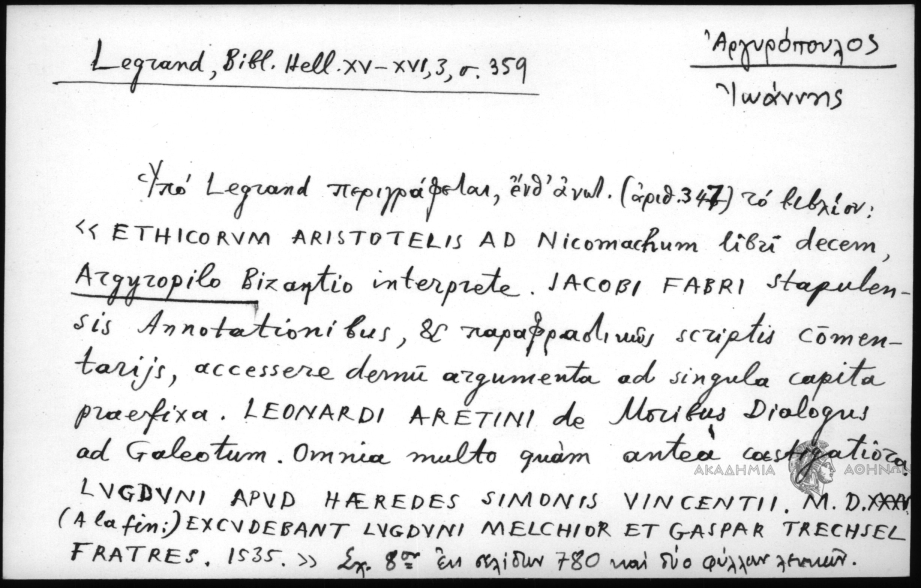 Legrand, Bibl. Hell. XV-XVI, 3, σ. 359
Ἀργυρόπουλος
Ἰωάννης
Ὑπό Legrand περιγράφεται, ἔνθ' ἀνωτ. (ἀριθ. 347) τό βιβλίον:
« ETHICORVM ARISTOTELIS AD Nicomachum libri decem,
Argyropilo Bizantio interprete. JACOBI FABRI Stapulen-
sis Annotationibus, & παραφραστικῶς scriptis cōmen-
tarijs, accessere demū argumenta ad singula capita
praefixa. LEONARDI ARETINI de Moribus Dialogus
ad Galeotum. Omnia multo quàm anteà castigatiōra.
ΑΚΑΔΗΜΙΑ ΑΘΗΝΩΝ
LVGDVNI APVD HÆREDES SIMONIS VINCENTII. M.D.XXXV
(A la fin:) EXCVDEBANT LVGDVNI MELCHIOR ET GASPAR TRECHSEL
FRATRES. 1535. » Σχ. 8ον ἐκ σελίδων 780 καί δύο φύλλων λευκῶν.